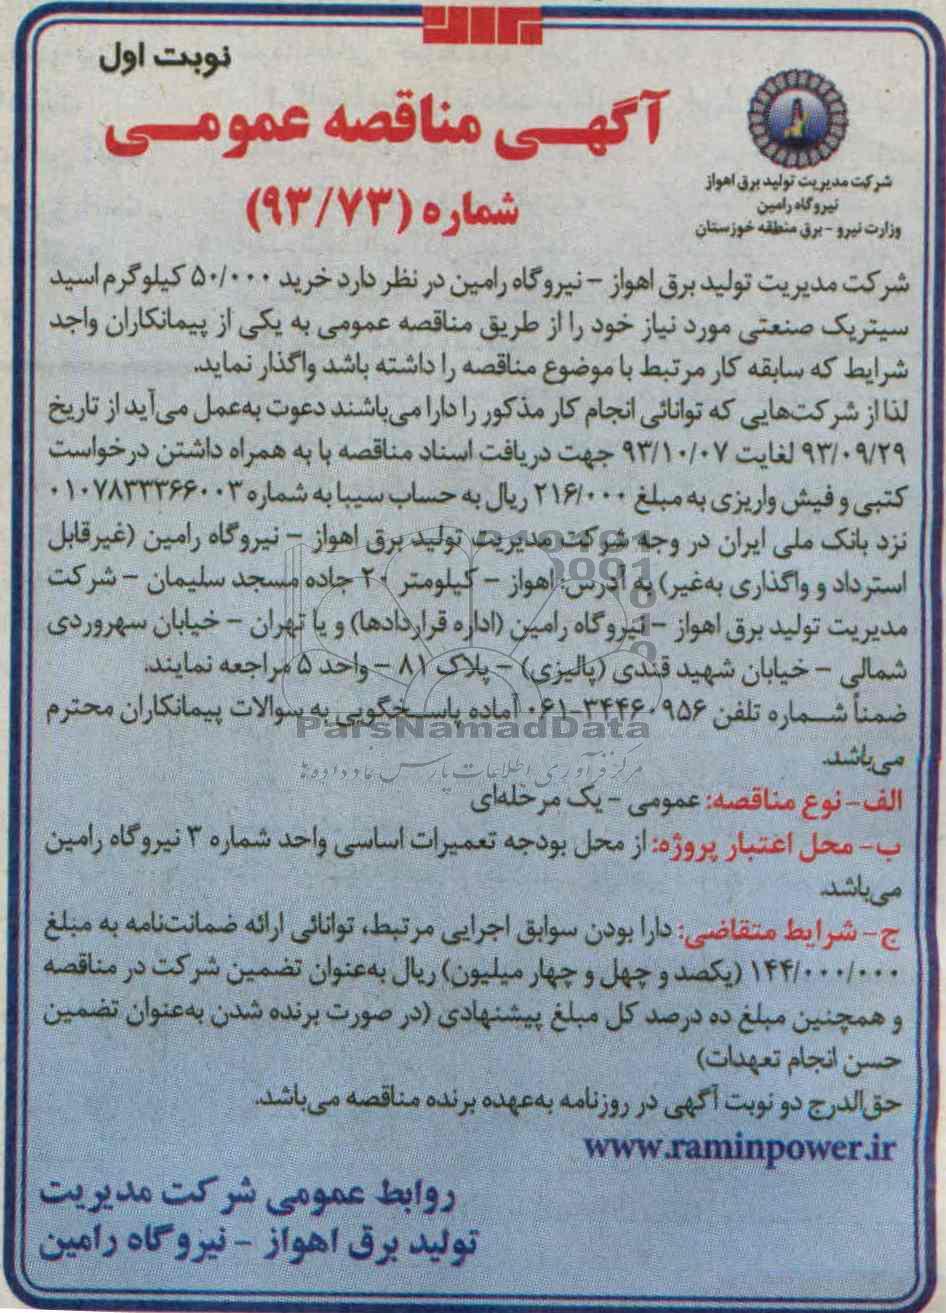 نوبت اول
آگهی مناقصه عمومی
شماره (۹۳/۷۳)
شرکت مدیریت تولید برق اهواز
نیروگاه رامین
وزارت نیرو - برق منطقه خوزستان
شرکت مدیریت تولید برق اهواز - نیروگاه رامین در نظر دارد خرید ۵۰/۰۰۰ کیلوگرم اسید
سیتریک صنعتی مورد نیاز خود را از طریق مناقصه عمومی به یکی از پیمانکاران واجد
شرایط که سابقه کار مرتبط با موضوع مناقصه را داشته باشد واگذار نماید.
لذا از شرکت‌هایی که توانائی انجام کار مذکور را دارا می‌باشند دعوت به‌عمل می‌آید از تاریخ
۹۳/۰۹/۲۹ لغایت ۹۳/۱۰/۰۷ جهت دریافت اسناد مناقصه با به همراه داشتن درخواست
کتبی و فیش واریزی به مبلغ ۲۱۶/۰۰۰ ریال به حساب سیبا به شماره ۰۱۰۷۸۳۳۳۶۶۰۰۳
نزد بانک ملی ایران در وجه شرکت مدیریت تولید برق اهواز - نیروگاه رامین (غیرقابل
استرداد و واگذاری به‌غیر) به آدرس: اهواز - کیلومتر ۲۰ جاده مسجد سلیمان - شرکت
مدیریت تولید برق اهواز - نیروگاه رامین (اداره قراردادها) و یا تهران - خیابان سهروردی
شمالی - خیابان شهید قندی (پالیزی) - پلاک ۸۱ - واحد ۵ مراجعه نمایند.
ضمناً شماره تلفن ۳۴۴۶۰۹۵۶-۰۶۱ آماده پاسخگویی به سوالات پیمانکاران محترم
می‌باشد.
ParsNamadData
مرکز فرآوری اطلاعات پارس نماد داده‌ها
الف- نوع مناقصه: عمومی - یک مرحله‌ای
ب- محل اعتبار پروژه: از محل بودجه تعمیرات اساسی واحد شماره ۳ نیروگاه رامین
می‌باشد.
ج- شرایط متقاضی: دارا بودن سوابق اجرایی مرتبط، توانائی ارائه ضمانت‌نامه به مبلغ
۱۴۴/۰۰۰/۰۰۰ (یکصد و چهل و چهار میلیون) ریال به‌عنوان تضمین شرکت در مناقصه
و همچنین مبلغ ده درصد کل مبلغ پیشنهادی (در صورت برنده شدن به‌عنوان تضمین
حسن انجام تعهدات)
حق‌الدرج دو نوبت آگهی در روزنامه به‌عهده برنده مناقصه می‌باشد.
www.raminpower.ir
روابط عمومی شرکت مدیریت
تولید برق اهواز - نیروگاه رامین